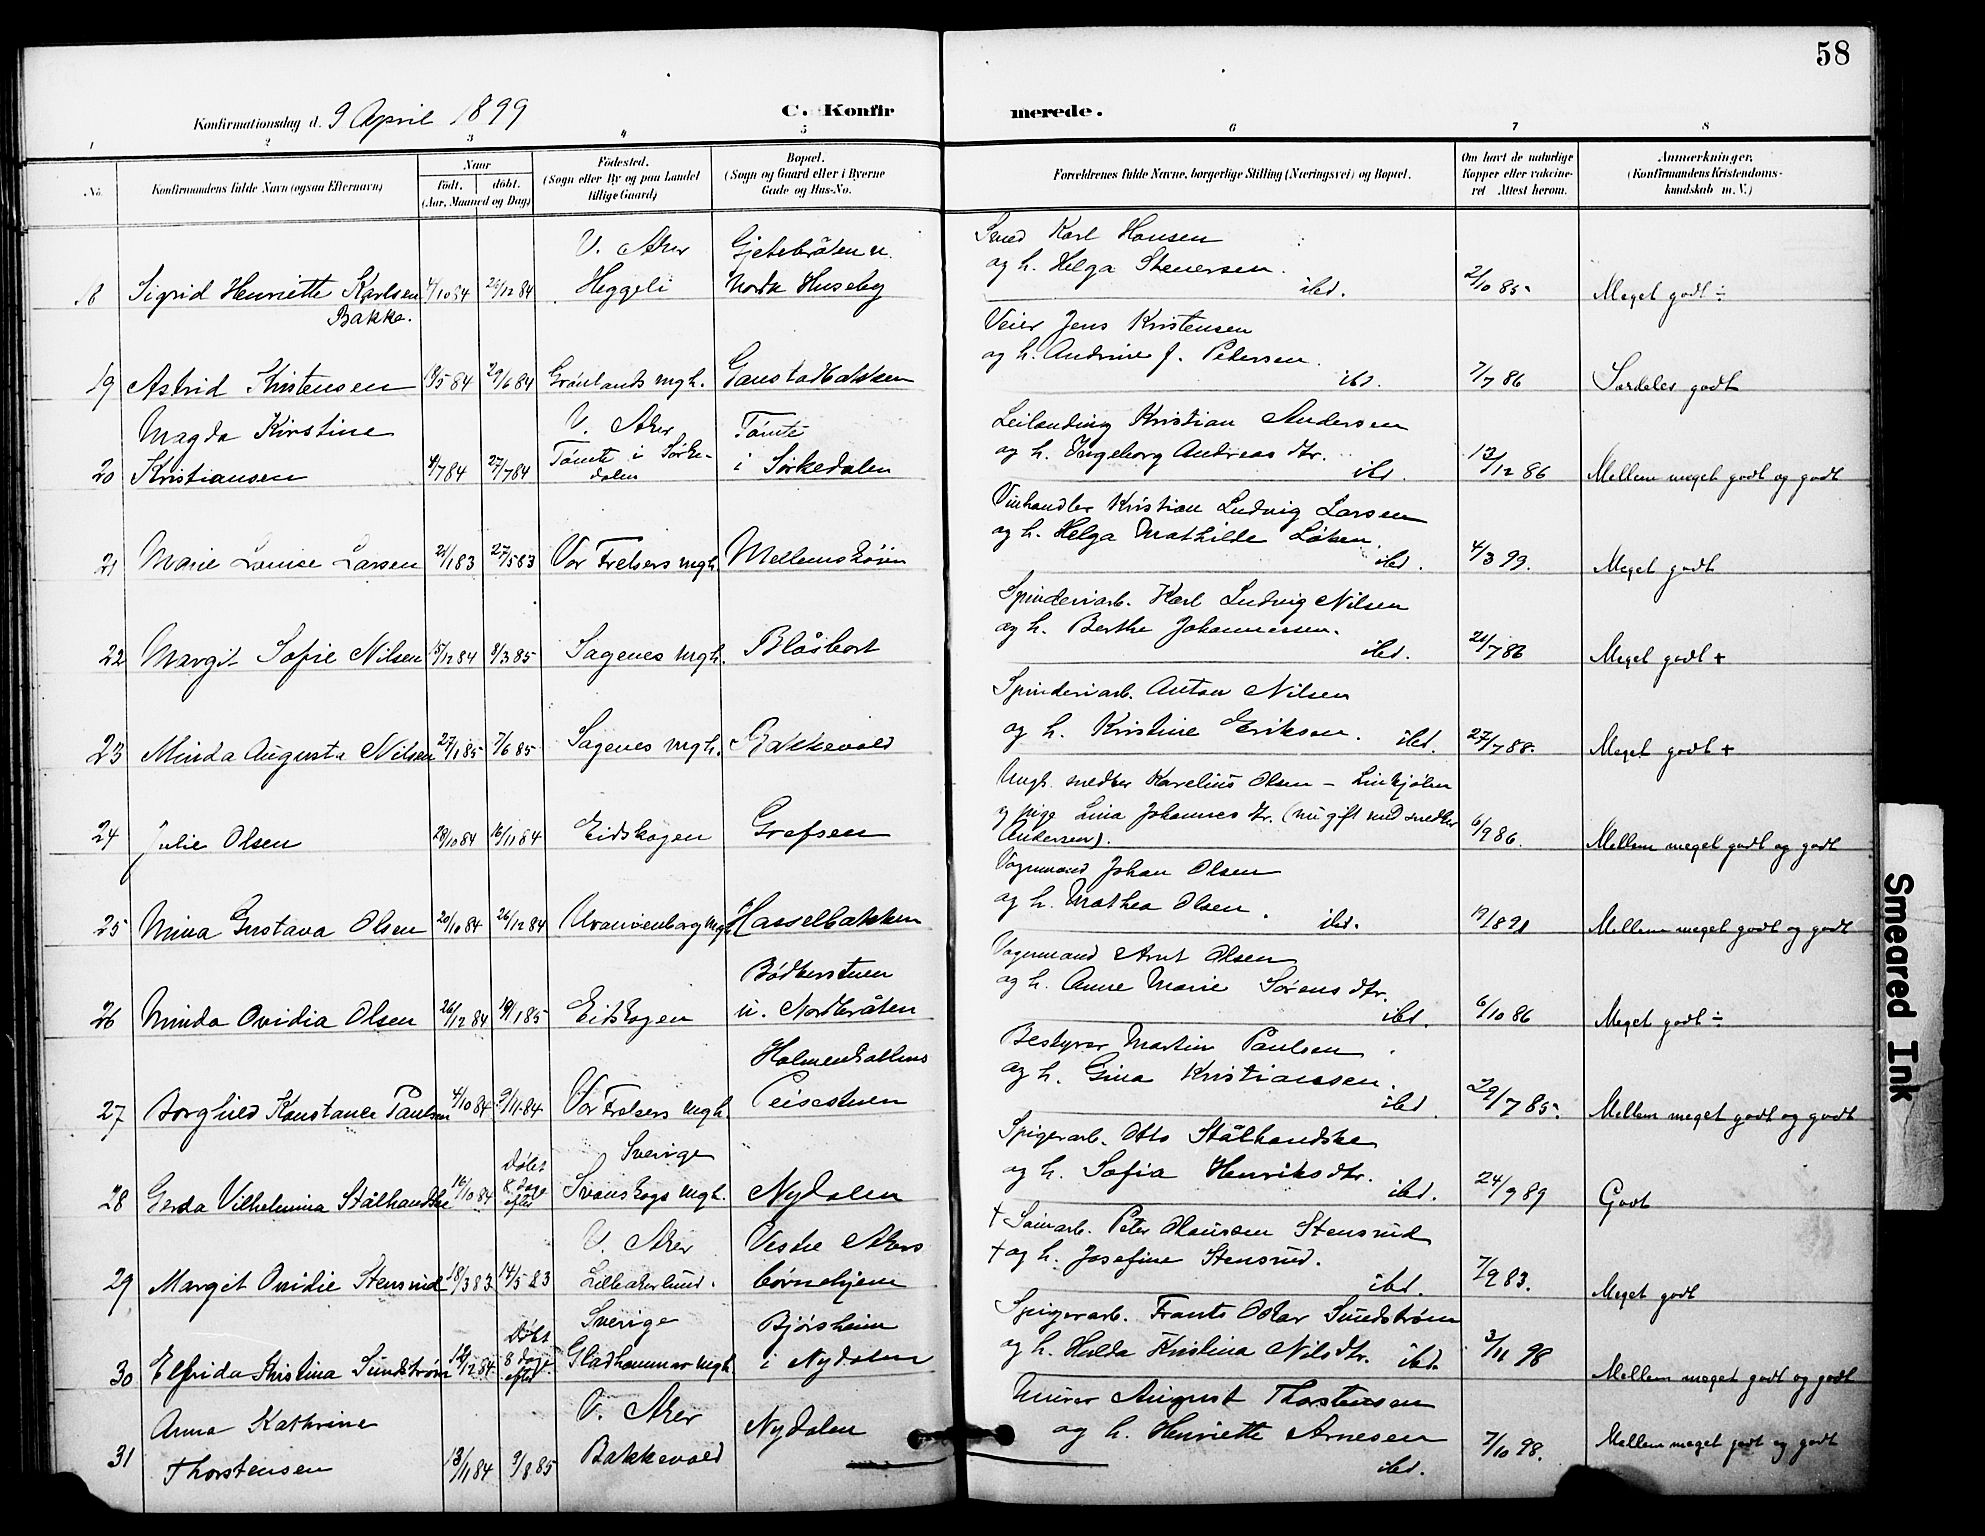 58
Konfirmationsdag d. 9 April 1899
C. Konfirmerede.
1 2 3 4 5 6 7 8
No.
Konfirmandens fulde Navn (ogsaa Efternavn)
Naar
födt. döbt.
(Aar, Maaned og Dag)
Födested.
(Sogn eller By og paa Landet
tillige Gaard)
Bopæl.
(Sogn og Gaard eller i Byerne
Gade og Hus-No.
Forældrenes fulde Navne, borgerlige Stilling (Næringsvei) og Bopæl.
Om havt de naturlige
Kopper eller vakcine-
ret Attest herom.
Anmærkninger.
(Konfirmandens Kristendoms-
kundskab m. V.)
V. Aker Gjetebråten u. Smed Karl Hansen
18 Sigrid Henriette Karlsen 4/10 84 26/12 84 Heggeli Nordre Huseby og h. Helga Stenersen. ibd. 2/10 85. Meget godt ÷
Bakke.
Veier Jens Kristensen
19 Astrid Kristensen 18/5 84 29/6 84 Grønlands mgh. Gaustadbakken og h. Andrine J. Petersen. ibd. 7/7 86 Særdeles godt
Magda Kirstine V. Aker Tømte Leilænding Kristian Andersen
20 Kristiansen 4/7 84 27/7 84 Tømte i Sørke- i Sørkedalen og h. Ingeborg Andreasdtr. ibd. 13/12 86 Mellem meget godt og godt
dalen
Vinhandler Kristian Ludvig Larsen
21 Marie Louise Larsen 21/1 83 27/5 83 Vor Frelsers mgh. Mellemskøien og h. Helga Mathilde Løken. ibd. 4/3 99. Meget godt
Spinderiarb. Karl Ludvig Nilsen
22 Margit Sofie Nilsen 15/12 84 8/3 85 Sagenes mgh. Blåsbort og h. Berthe Johannessen. ibd. 21/7 86 Meget godt +
Spinderiarb. Anton Nilsen
23 Minda Augusta Nilsen 27/1 85 7/6 85 Sagenes mgh. Bakkevold og h. Kristine Eriksen. ibd. 27/7 88. Meget godt +
Ungk. snedker Karelius Olsen – Linkjølen
24 Julie Olsen 28/10 84 16/11 84 Eidskogen Grefsen og pige Lina Johannesdtr. (nu gift med snedker 6/9 86. Mellem meget godt og godt
Andersen).
Vognmand Johan Olsen
25 Mina Gustava Olsen 20/10 84 26/12 84 Uranienborg mgh. Hasselbakken og h. Mathea Olsen. ibd. 19/8 91 Mellem meget godt og godt
Bødkerstuen Vognmand Arnt Olsen
26 Minda Ovidia Olsen 26/12 84 18/1 85 Eidskogen u. Nordbråten og h. Anne Marie Sørensdtr. ibd. 6/10 86 Meget godt ÷
Holmenkollens Bestyrer Martin Paulsen
27 Borghild Konstance Paulsen 4/10 84 9/11 84 Vor Frelsers mgh. Peisestuen og h. Gina Kristianssen. ibd. 29/7 85. Mellem meget godt og godt
Døbt Sverige Spigerarb. Otto Stålhandske
28 Gerda Vilhelmina Stålhandske 16/10 84 8 dage Svanskogs mgh. Nydalen og h. Sofia Henriksdtr. ibd. 24/9 89 Godt
efter
V. Aker Vestre Akers † Søinarb. Peter Olaussen Stensrud
29 Margit Ovidie Stensrud 18/3 83 14/5 83 Lilleakerlund. børnehjem † og h. Josefine Stensrud. ibd. 7/9 83. Meget godt
Døbt Sverige Bjørsheim Spigerarb. Frants Oskar Sundstrøm
30 Elfrida Kristina Sundstrøm 12/12 84. 8 dage Gladhammar mgh. i Nydalen og h. Hulda Kristina Nilsdtr. ibd. 3/11 98 Mellem meget godt og godt
efter
Anna Kathrine V. Aker Nydalen Murer August Thorstensen
31 Thorstensen 13/11 84 9/8 85 Bakkevold og h. Henriette Arnesen ibd. 7/10 98. Mellem meget godt og godt
Smeared Ink